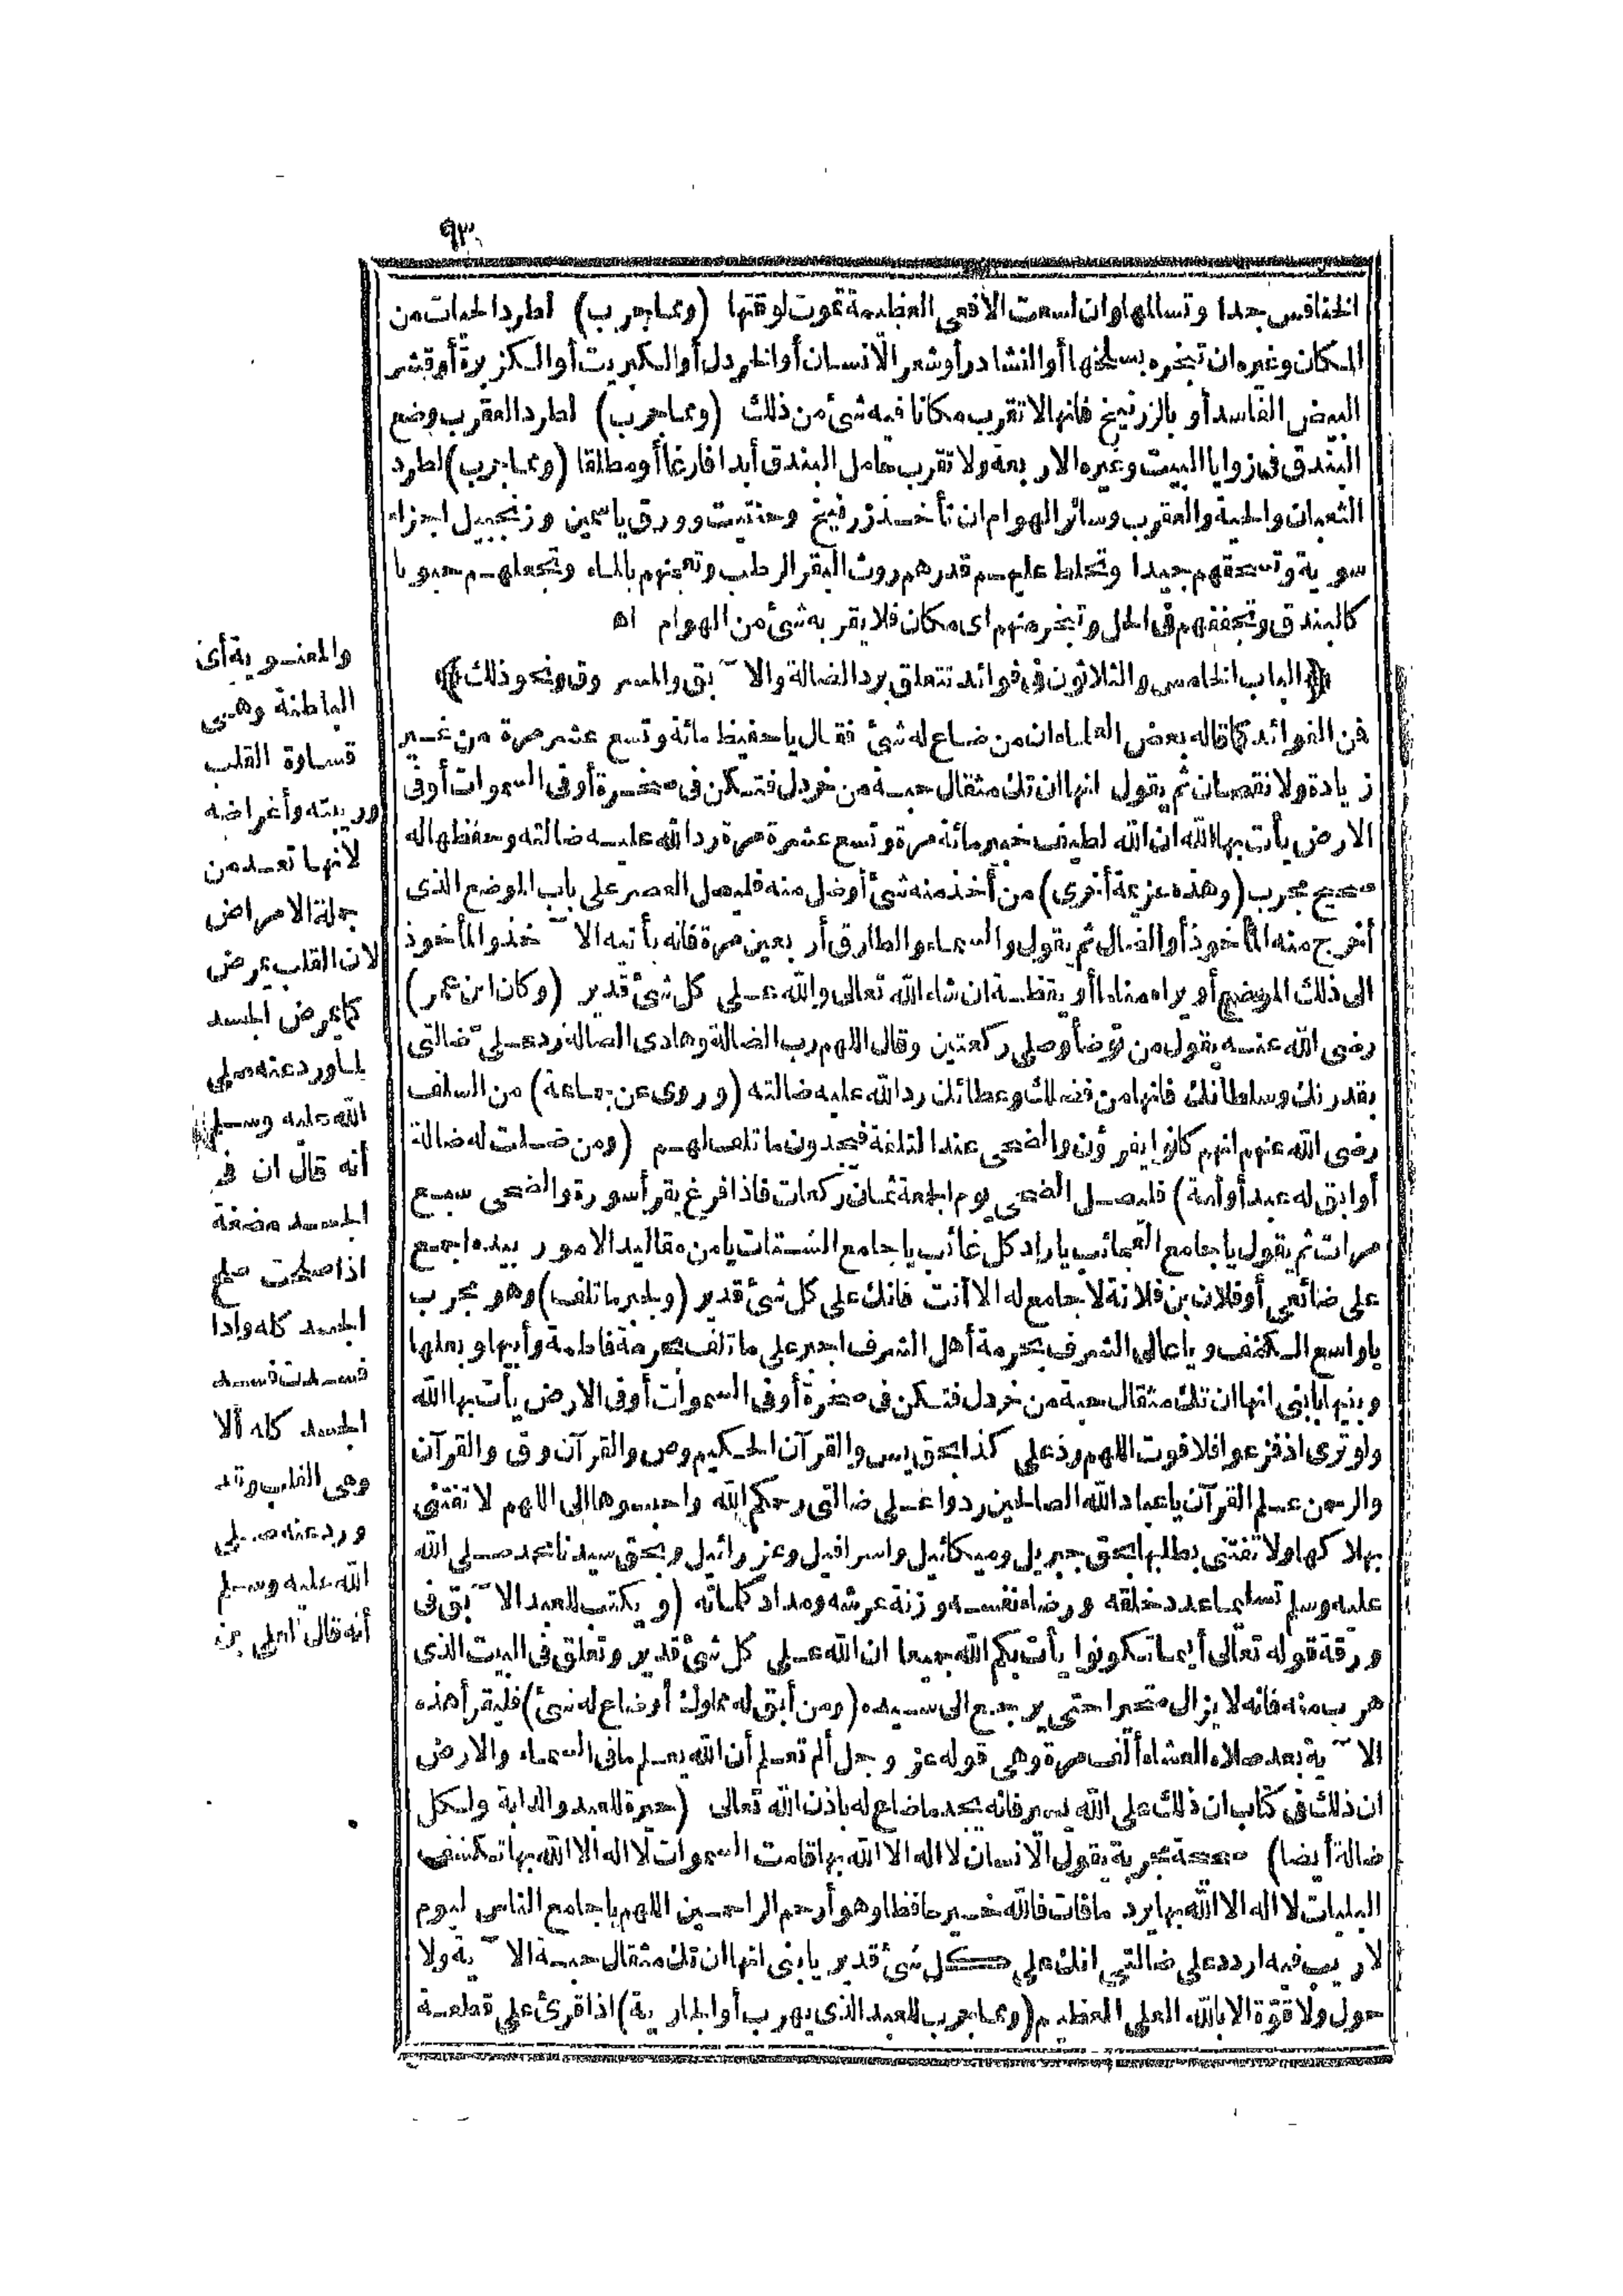 ٩٣
الخنافس جدا وتسالمها وان لسعت الافعى العظيمة تموت لوقتها (ومما جرب) لطرد الحيات من
المكان وغيره ان تبخره بسلخها أو النشادر أو شعر الانسان أو الخردل أو الكبريت أو الكزبرة أو قشر
البيض الفاسد أو بالزرنيخ فانها لا تقرب مكانا فيه شئ من ذلك (ومما جرب) لطرد العقرب وضع
البندق فى زوايا البيت وغيره الاربعة ولا تقرب حامل البندق أبدا فارغا أو مطلقا (ومما جرب) لطرد
الثعبان والحية والعقرب وسائر الهوام ان تأخذ زرنيخ وحنتيت وورق ياسمين وزنجبيل اجزاء
سوية وتسحقهم جيدا وتخلط عليهم قدرهم روث البقر الرطب وتعجنهم بالماء وتجعلهم حبوبا
كالبندق وتجففهم فى الظل وتبخر منهم اى مكان فلا يقربه شئ من الهوام اه
﴿الباب الخامس والثلاثون فى فوائد تتعلق برد الضالة والآبق والمسروق ونحو ذلك﴾
فن الفوائد كما قاله بعض العلماء ان من ضاع له شئ فقال يا حفيظ مائة وتسع عشر مرة من غير
زيادة ولا نقصان ثم يقول انها ان تك مثقال حبة من خردل فتكن فى صخرة أو فى السموات أو فى
الارض يأت بها الله ان الله لطيف خبير مائة مرة وتسع عشرة مرة رد الله عليه ضالته وحفظها له
صحيح مجرب (وهذه عزيمة أخرى) من أخذ منه شئ أو ضل منه فليصل العصر على باب الموضع الذى
أخرج منه المأخوذ أو الضال ثم يقول والسماء والطارق أربعين مرة فانه يأتيه الآخذ والمأخوذ
الى ذلك الموضع أو يراه مناما أو يقظة ان شاء الله تعالى والله على كل شئ قدير (وكان ابن عمر)
رضى الله عنه يقول من توضأ وصلى ركعتين وقال اللهم رب الضالة وهادى الضالة رد على ضالتى
بقدرتك وسلطانك فانها من فضلك وعطائك رد الله عليه ضالته (وروى عن جماعة) من السلف
رضى الله عنهم انهم كانوا يقرؤن والضحى عند التلفة فيجدون ما تلف لهم (ومن ضلت له ضالة
أو ابق له عبد أو أمة) فليصل الضحى يوم الجمعة ثمان ركعات فاذا فرغ يقرأ سورة والضحى سبع
مرات ثم يقول يا جامع العجائب يا راد كل غائب يا جامع الشتات يا من مقاليد الامور بيده اجمع
على ضائعى أو فلان بن فلانة لا جامع له الا أنت فانك على كل شئ قدير (ولجبر ما تلف) وهو مجرب
يا واسع الكنف ويا عالى الشرف بحرمة أهل الشرف اجبر على ما تلف بحرمة فاطمة وأبيها وبعلها
وبنيها يابنى انها ان تك مثقال حبة من خردل فتكن فى صخرة أو فى السموات أو فى الارض يأت بها الله
ولو ترى اذ فزعوا فلا فوت اللهم رد على كذا بحق يس والقرآن الحكيم وص والقرآن وق والقرآن
والرحمن علم القرآن يا عباد الله الصالحين ردوا على ضالتى رحمكم الله واحبسوها الى اللهم لا تفتنى
بهلاكها ولا تفتنى بطلبها بحق جبريل وميكائيل واسرافيل وعزرائيل وبحق سيدنا محمد صلى الله
عليه وسلم تسليما عدد خلقه ورضاء نفسه وزنة عرشه ومداد كلماته (ويكتب للعبد الآبق فى
ورقة قوله تعالى أينما تكونوا يأت بكم الله جميعا ان الله على كل شئ قدير وتعلق فى البيت الذى
هرب منه فانه لا يزال متحيرا حتى يرجع الى سيده (ومن أبق له مملوك أو ضاع له شئ) فليقرأ هذه
الآية بعد صلاة العشاء ألف مرة وهى قوله عز وجل ألم تعلم أن الله يعلم ما فى السماء والارض
ان ذلك فى كتاب ان ذلك على الله يسير فانه يجد ما ضاع له باذن الله تعالى (حيرة للعبد والدابة ولكل
ضالة أيضا) صحيحة مجربة يقول الانسان لا اله الا الله بها قامت السموات لا اله الا الله بها تكشف
البليات لا اله الا الله بها يرد ما فات فالله خير حافظا وهو أرحم الراحمين اللهم يا جامع الناس ليوم
لا ريب فيه اردد على ضالتى انك على كل شئ قدير يا بنى انها ان تك مثقال حبة الآية ولا
حول ولا قوة الا بالله العلى العظيم (ومما جرب للعبد الذى يهرب أو الجارية) اذا قرئ على قطعة
والمعنوية أى
الباطنة وهى
قساوة القلب
وريبته وأغراضه
لانها تعد من
جملة الامراض
لان القلب يمرض
كما يمرض الجسد
لما ورد عنه صلى
الله عليه وسلم
أنه قال ان فى
الجسد مضغة
اذا صلحت صلح
الجسد كله واذا
فسدت فسد
الجسد كله ألا
وهى القلب وقد
ورد عنه صلى
الله عليه وسلم
أنه قال لعلى بن